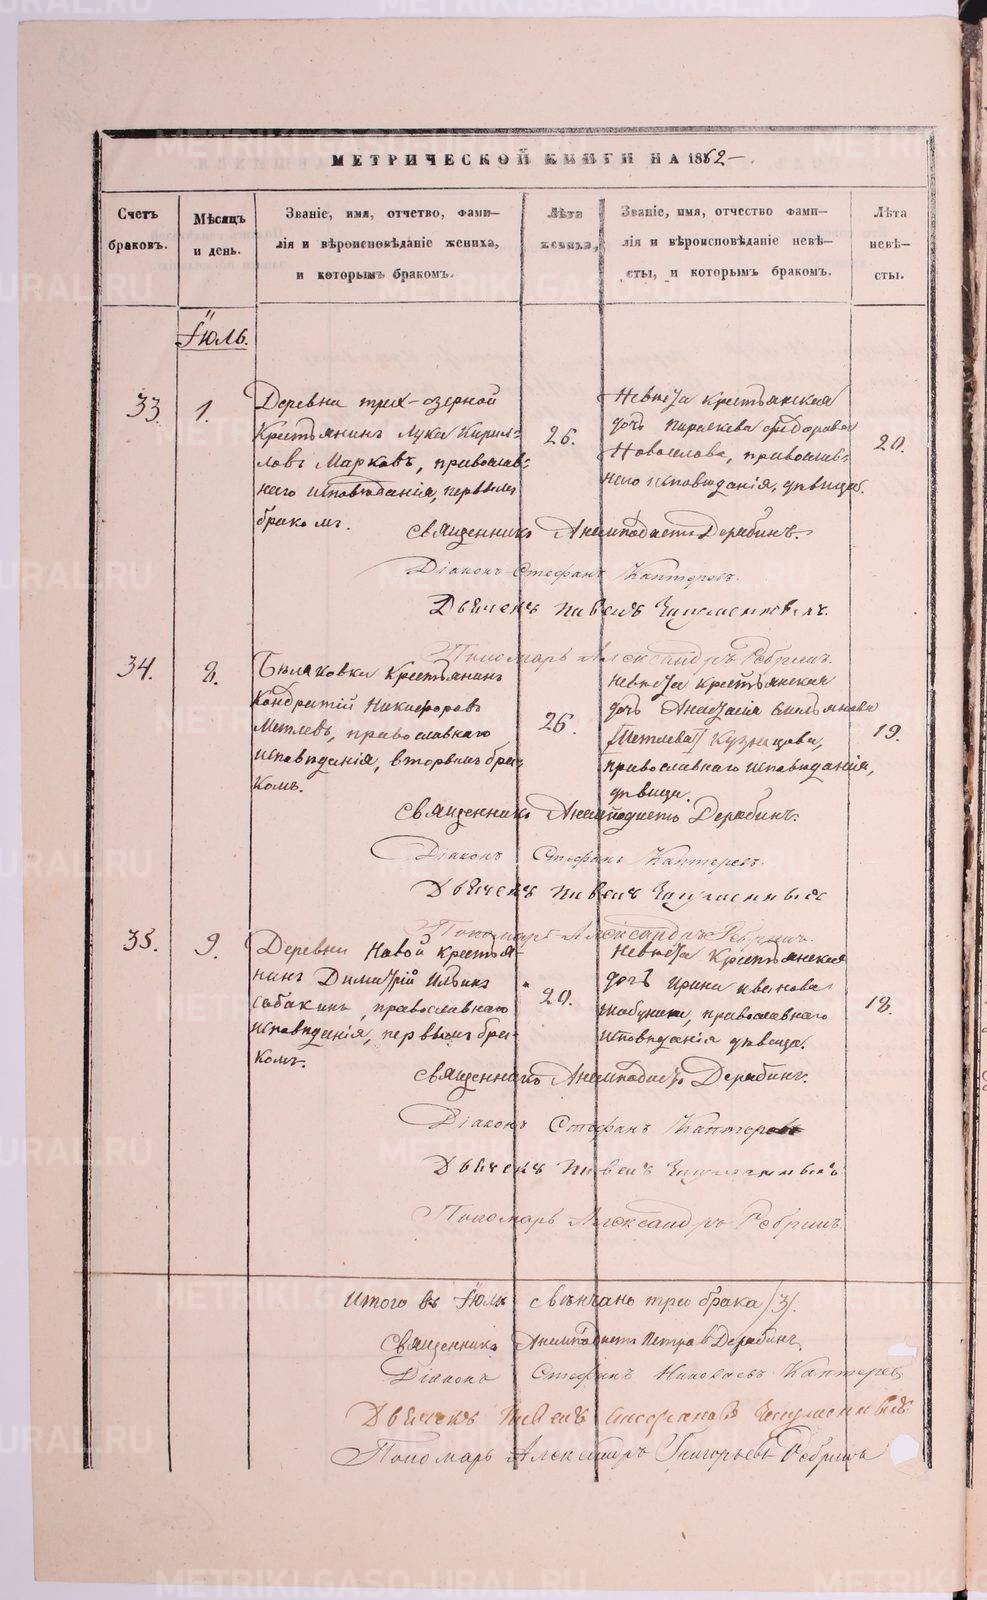 МЕТРИЧЕСКОЙ КНИГИ НА 1862
Счетъ браковъ.
Мѣсяцъ и день.
Званіе, имя, отчетво, фами-
лія и вѣроисповѣданіе жениха,
и которымъ бракомъ.
Лѣта жениха.
Званіе, имя, отчество фами-
лія и вѣроисповѣданіе невѣ-
сты, и которымъ бракомъ.
Лѣта невѣ-
сты.
Іюль.
33.
1.
Деревни трех-озерной
крестьянинъ Лука Кирил-
ловъ Марковъ, православ-
наго исповѣданія, первымъ
бракомъ.
26.
Невѣста крестьянская
дочь Параскева Федорова
Новоселова, православ-
наго исповѣданія, дѣвица.
20.
Священникъ Анемподистъ Дерябинъ.
Діаконъ Стефанъ Каптеревъ.
Дьячекъ Павелъ
Пономарь Александръ
34.
8.
Бѣляковки крестьянинъ
Кондратій Никифоровъ
Метлевъ, православнаго
исповѣданія, вторымъ бра-
комъ.
26.
Невѣста крестьянская
дочь Анастасія Емельянова
Кузнецова,
православнаго исповѣданія,
дѣвица.
19.
Священникъ Анемподистъ Дерябинъ.
Діаконъ Стефанъ Каптеревъ.
Дьячекъ Павелъ
Пономарь Александръ
35.
9.
Деревни Новой крестья-
нинъ Димитрій Ильинъ
Собакинъ, православнаго
исповѣданія, первымъ бра-
комъ.
20.
Невѣста крестьянская
дочь Ирина Иванова
православнаго
исповѣданія дѣвица.
18.
Священникъ Анемподистъ Дерябинъ.
Діаконъ Стефанъ Каптеревъ
Дьячекъ Павелъ
Пономарь Александръ
Итого въ Іюлѣ свѣнчано три брака /3/.
Священникъ Анемподистъ Петровъ Дерябинъ
Діаконъ Стефанъ Николаевъ Каптерев
Дьячекъ Павелъ Стефановъ
Пономарь Александръ Григорьевъ
METRIKI.GASO-URAL.RU